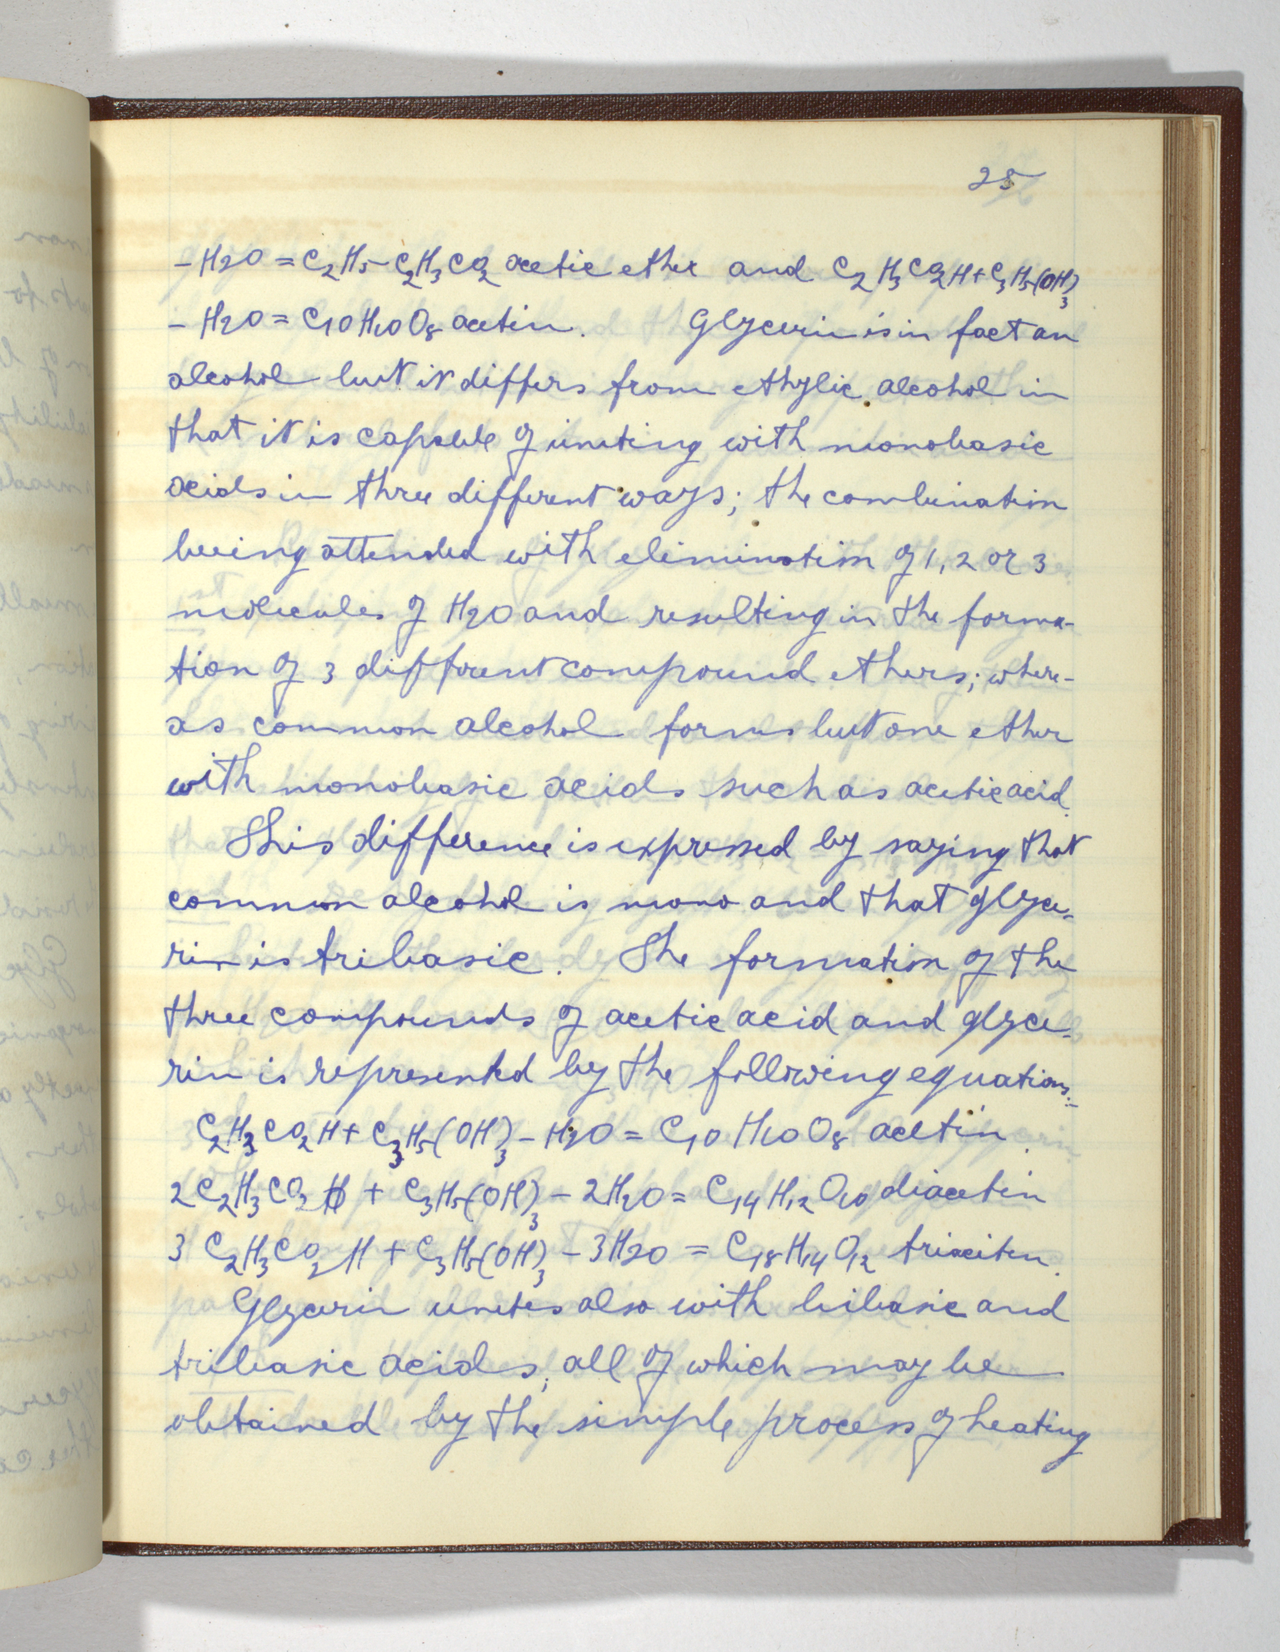 25
- H2O = C2H5-C2H3CO2 acetic ether and C2H3CO2H + C3H5(OH)3
- H2O = C10H10O8 acetin. Glycerin is in fact an
alcohol but it differs from ethylic alcohol in
that it is capable of uniting with monobasic
acids in three different ways; the combination
being attended with elimination of 1, 2 or 3
molecules of H2O and resulting in the forma-
tion of 3 different compound ethers; where-
as common alcohol forms but one ether
with monobasic acids such as acetic acid.
This difference is expressed by saying that
common alcohol is mono and that glyce-
rin is tribasic. The formation of the
three compounds of acetic acid and glyce-
rin is represented by the following equations:-
C2H3CO2H + C3H5(OH)3 - H2O = C10H10O8 acetin.
2C2H3CO2H + C3H5(OH)3 - 2H2O = C14H12O10 diacetin
3 C2H3CO2H + C3H5(OH)3 - 3H2O = C18H14O12 triacitin.
Glycerin unites also with bibasic and
tribasic acids, all of which may be
obtained by the simple process of heating